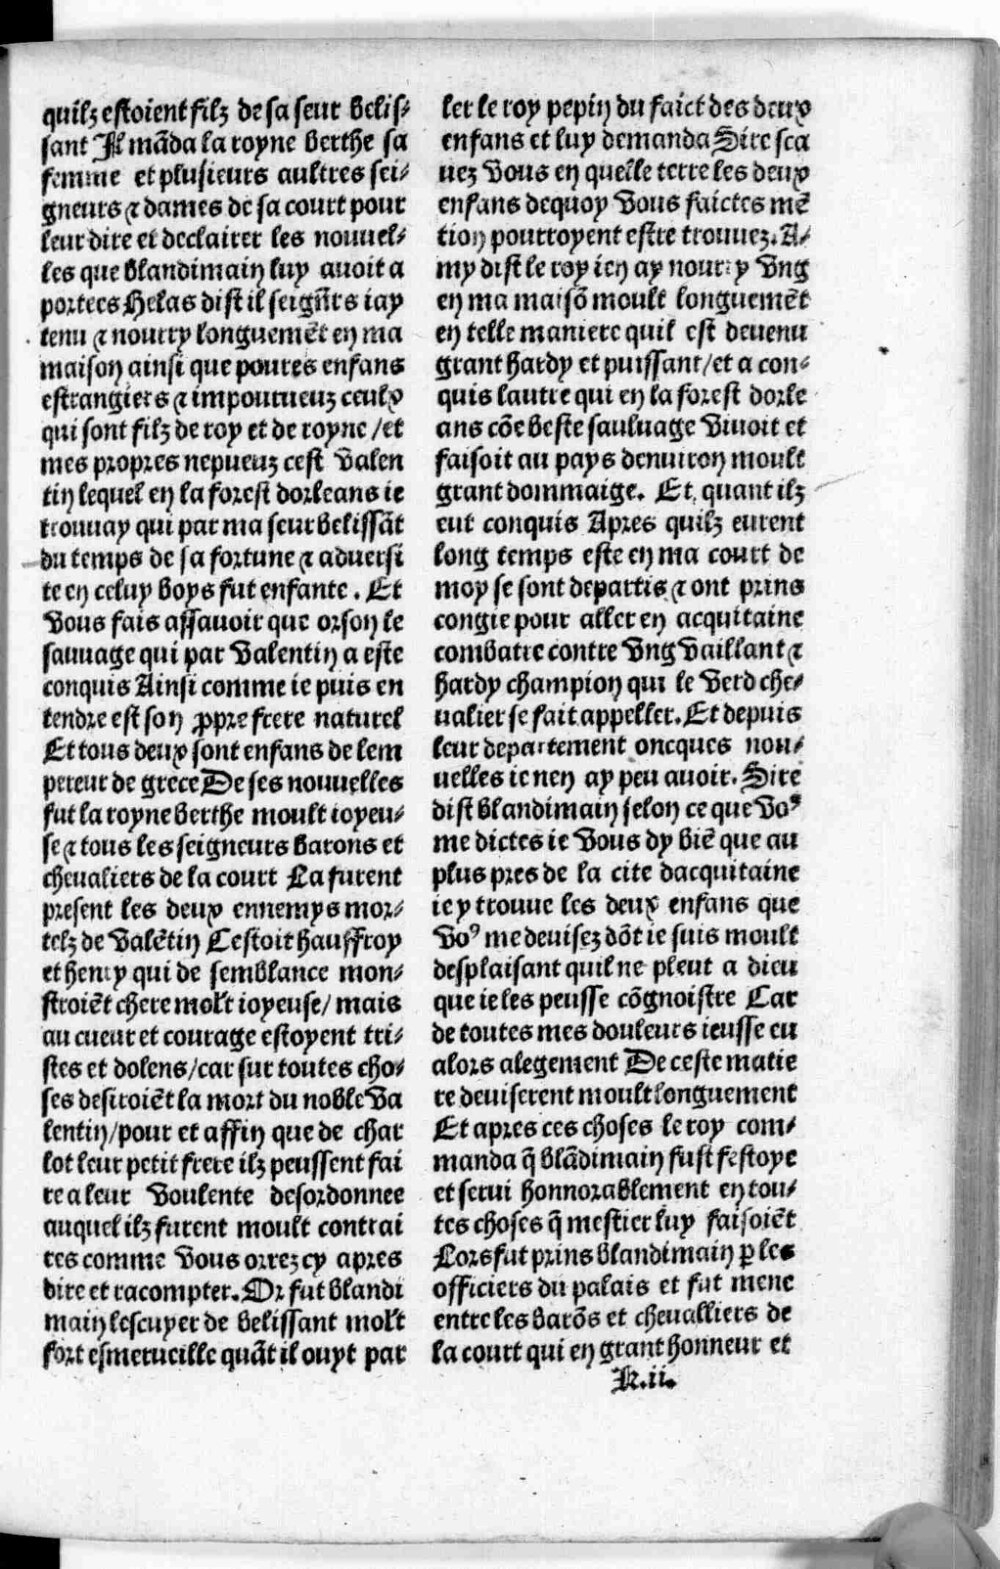 quilz estoient filz de sa seur belis-
sant Il mãda la royne berthe sa
femme et plusieurs aultres sei-
gneurs ⁊ dames de sa court pour
leur dire et declairer les nouuel-
les que blandimain luy auoit a
portees Helas dist il seignr̃s iay
tenu ⁊ nourry longuemẽt en ma
maison ainsi que poures enfans
estrangiers ⁊ impourueuz ceulx
qui sont filz de roy et de royne / et
mes propres nepueuz cest Valen
tin lequel en la forest dorleans ie
trouuay qui par ma seur belissãt
du temps de sa fortune ⁊ aduersi
te en celuy boys fut enfante. Et
vous fais assauoir que orson le
sauuage qui par Valentin a este
conquis Ainsi comme ie puis en
tendre est son ꝓpre frere naturel
Et tous deux sont enfans de lem
pereur de grece De ses nouuelles
fut la royne berthe moult ioyeu-
se ⁊ tous les seigneurs barons et
cheualiers de la court La furent
present les deux ennemys mor-
telz de Valẽtin Cestoit hauffroy
et henry qui de semblance mon-
stroiẽt chere molt ioyeuse / mais
au cueur et courage estoyent tri-
stes et dolens / car sur toutes cho-
ses desiroiẽt la mort du noble Va
lentin / pour et affin que de char
lot leur petit frere ilz peussent fai
re a leur voulente desordonnee
auquel ilz furent moult contrai
res comme vous orrez cy apres
dire et racompter. Or fut blandi
main lescuyer de belissant molt
fort esmerueille quãt il ouyt par
ler le roy pepin du faict des deux
enfans et luy demanda Sire sca
uez vous en quelle terre les deux
enfans dequoy vous faictes mẽ
tion pourroyent estre trouuez. A-
my dist le roy ien ay nourry vng
en ma maisõ moult longuemẽt
en telle maniere quil est deuenu
grant hardy et puissant / et a con-
quis lautre qui en la forest dorle
ans cõe beste sauluage viuoit et
faisoit au pays denuiron moult
grant dommaige. Et quant ilz
eut conquis Apres quilz eurent
long temps este en ma court de
moy se sont departis ⁊ ont prins
congie pour aller en acquitaine
combatre contre vng vaillant ⁊
hardy champion qui le verd che-
ualier se fait appeller. Et depuis
leur departement oncques nou-
uelles ie nen ay peu auoir. Sire
dist blandimain selon ce que voꝰ
me dictes ie vous dy biẽ que au
plus pres de la cite dacquitaine
ie y trouue les deux enfans que
voꝰ me deuisez dõt ie suis moult
desplaisant quil ne pleut a dieu
que ie les peusse cõgnoistre Car
de toutes mes douleurs ieusse eu
alors alegement De ceste matie
re deuiserent moult longuement
Et apres ces choses le roy com-
manda q̃ blãdimain fust festoye
et serui honnorablement en tou-
tes choses q̃ mestier luy faisoiẽt
Lors fut prins blandimain ꝑ les
officiers du palais et fut mene
entre les barõs et cheualliers de
la court qui en grant honneur et
K.ii.